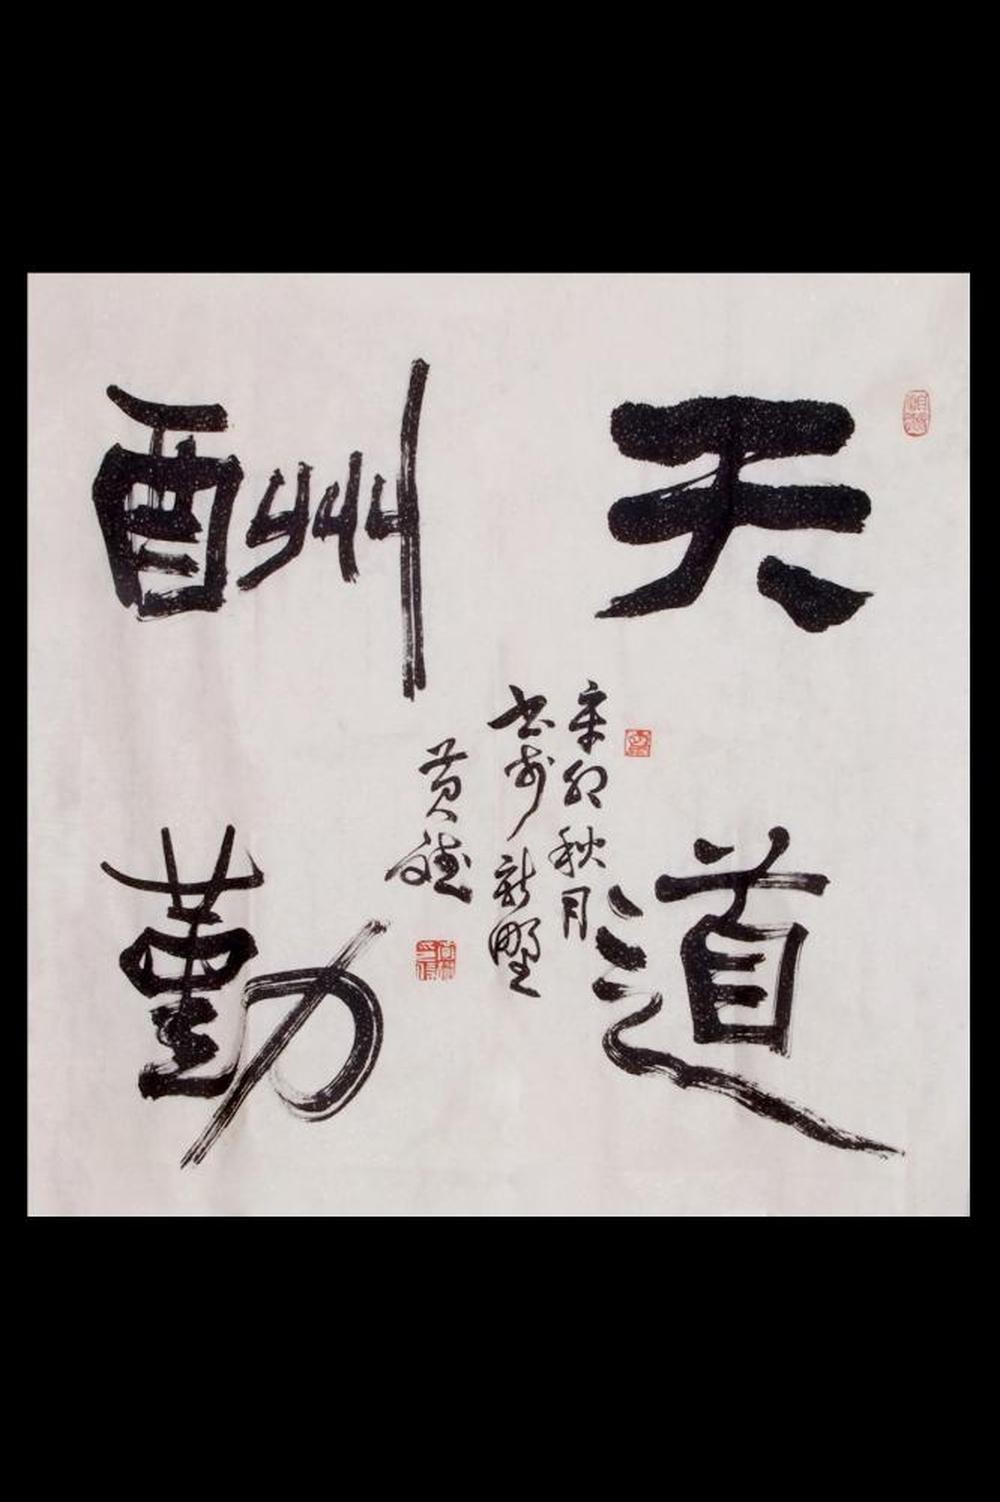 天道
酬勤
辛卯秋月
书于新野
黄斌